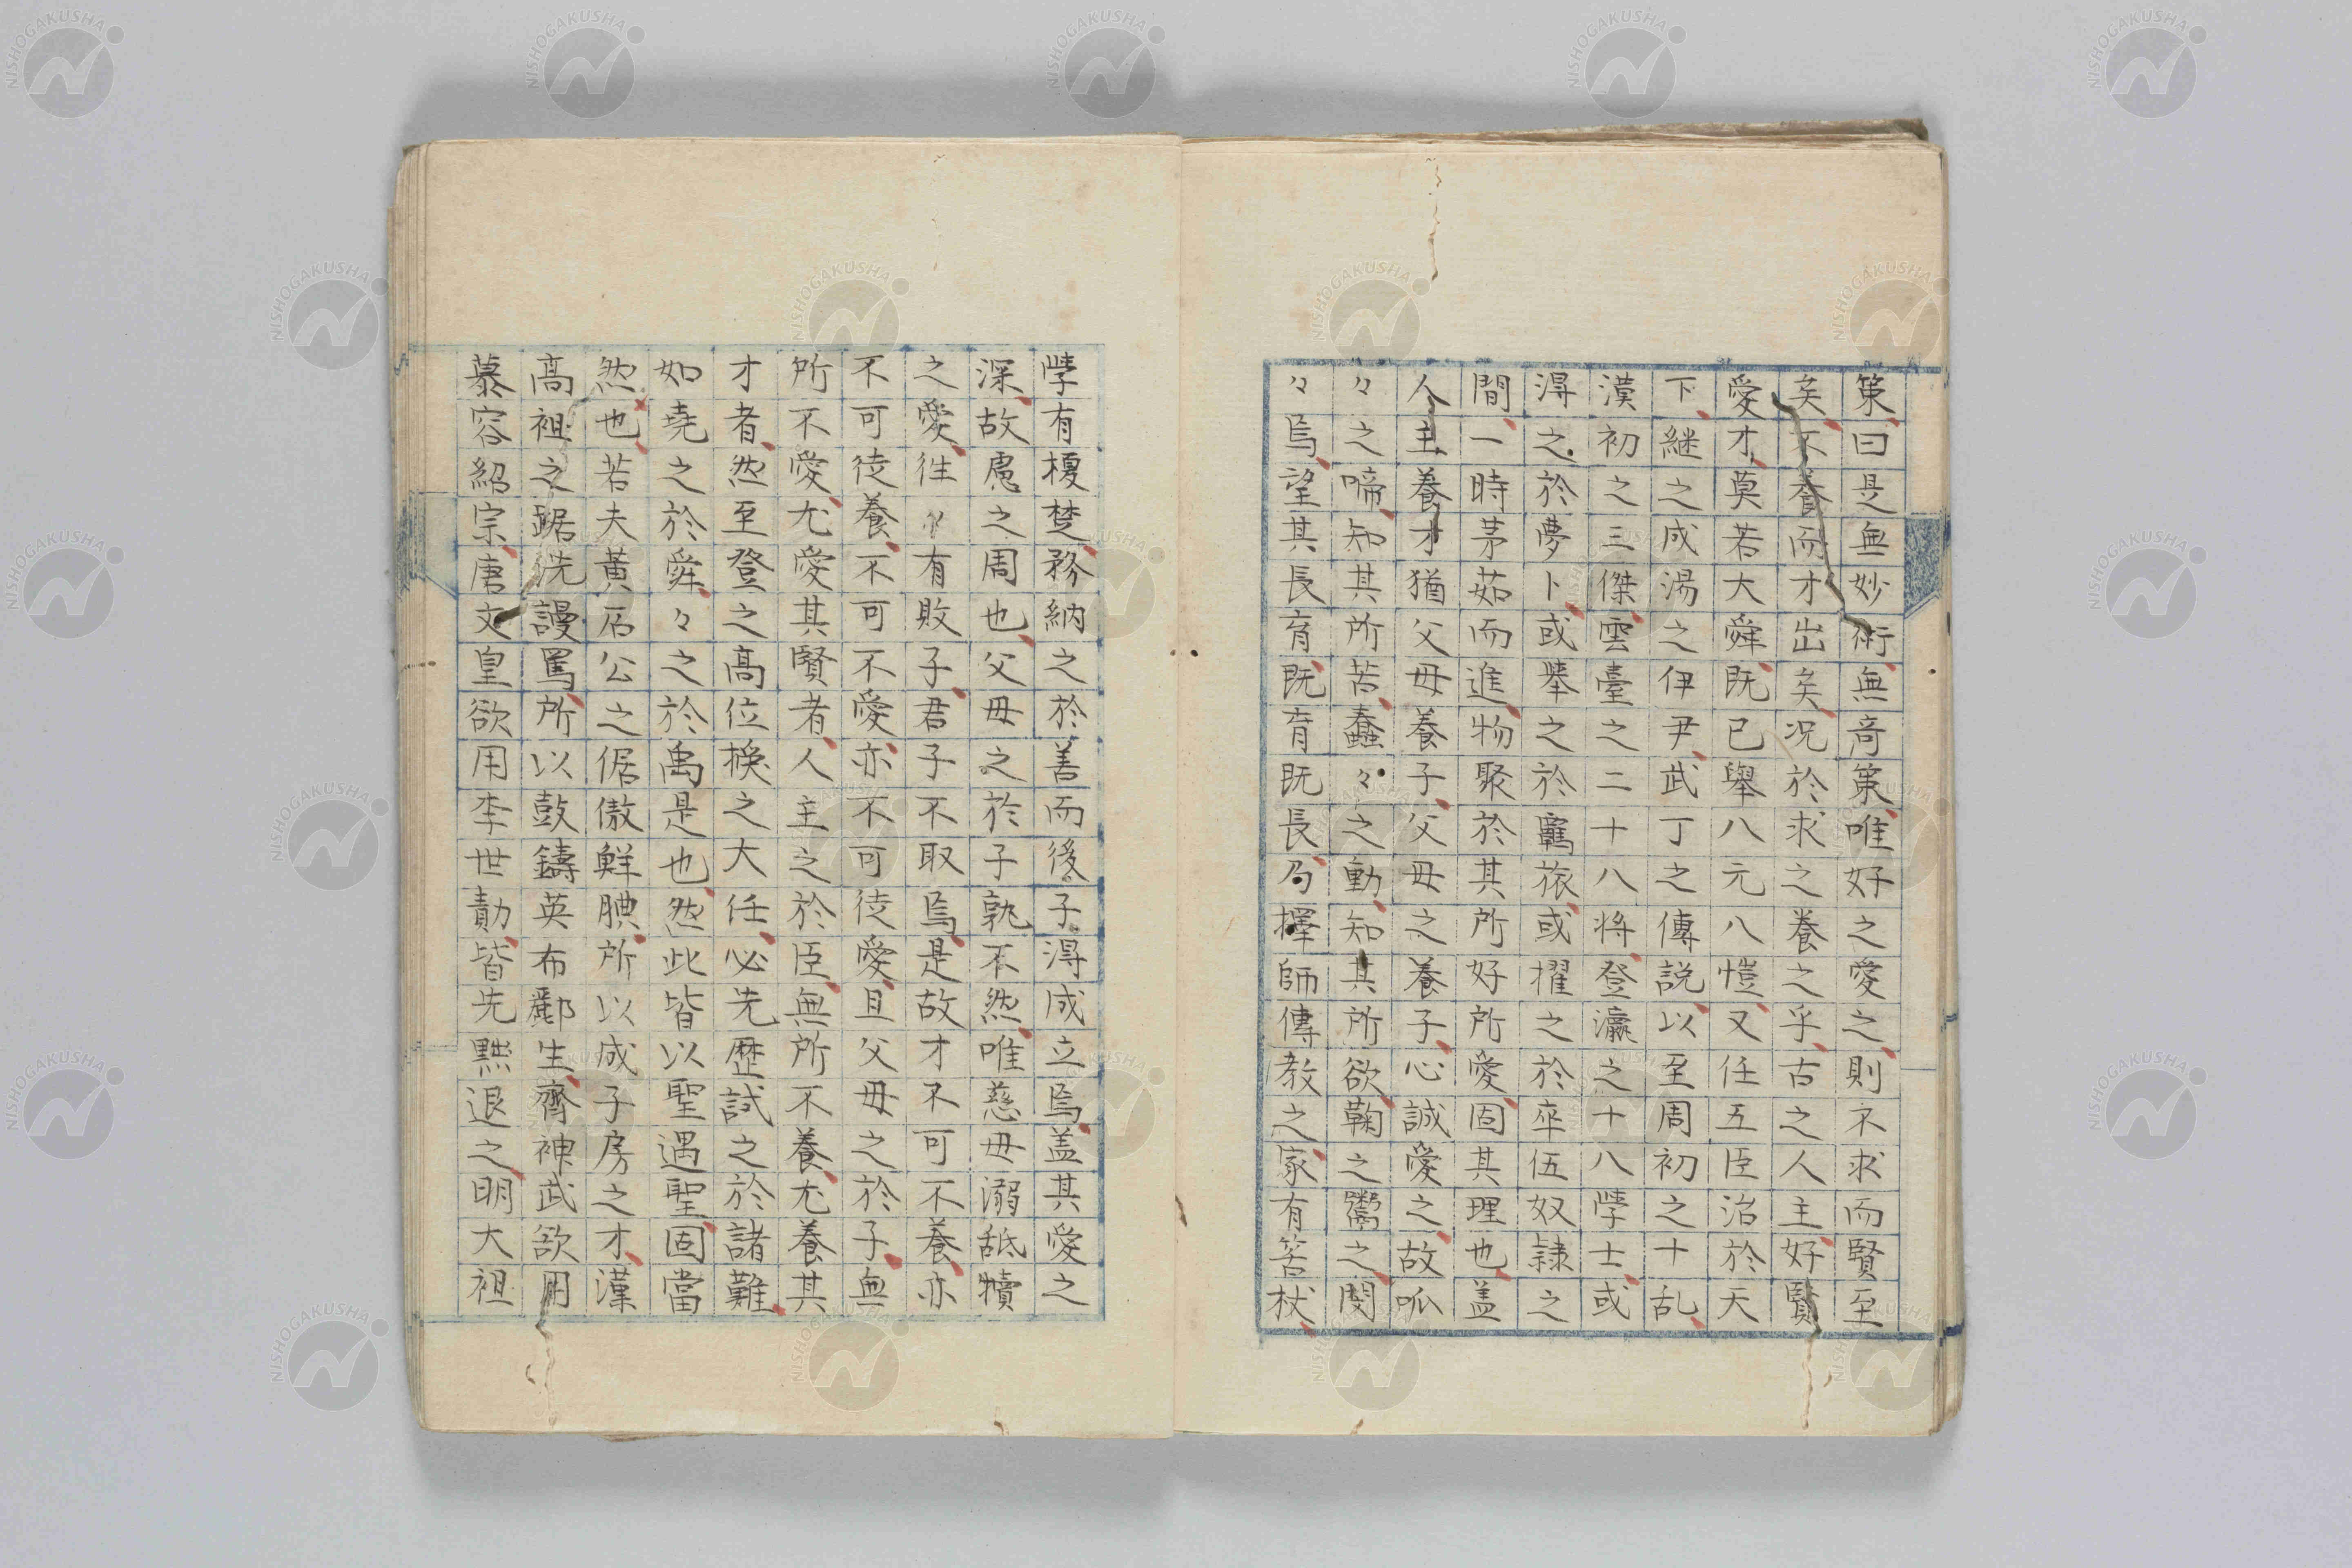 策曰是無妙術無奇策唯好之愛之則不求而賢至
矣不養而才出矣况於求之養之乎古之人主好賢
愛才莫若大舜既已舉八元八愷又任五臣治於天
下継之成湯之伊尹武丁之傅説以至周初之十乱
漢初之三傑雲臺之二十八将登瀛之十八學士或
淂之於夢卜或舉之於羈旅或擢之於卒伍奴隷之
間一時茅茹而進物聚於其所好所愛固其理也盖
人主養才猶父母養子父母之養子心誠愛之故呱
々之啼知其所苦蠢々之動知其所欲鞠之鬻之閔
々焉望其長育既育既長乃擇師傅教之家有笞杖
學有榎楚務納之於善而後子淂成立焉盖其愛之
深故慮之周也父母之於子孰不然唯慈母溺舐犢
之愛徃々有敗子君子不取焉是故才不可不養亦
不可徒養不可不愛亦不可徒愛且父母之於子無
所不愛尤愛其賢者人主之於臣無所不養尤養其
才者然至登之高位換之大任必先歴試之於諸難
如堯之於舜々之於禹是也然此皆以聖遇聖固當
然也若夫黄石公之倨傲鮮腆所以成子房之才漢
高祖之踞洗謾罵所以鼓鑄英布酈生齊神武欲用
慕容紹宗唐文皇欲用李世勣皆先黜退之明大祖
NISHOGAKUSHA